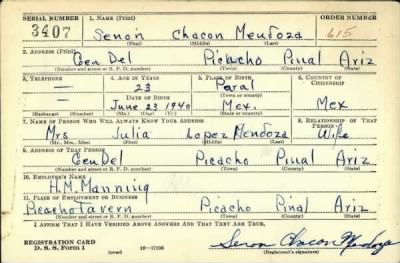 SERIAL NUMBER 1. NAME (Print) ORDER NUMBER
3407 Senon Chacon Mendoza 615
(First) (Middle) (Last)
2. ADDRESS (Print)
Gen Del Picacho Pinal Ariz
(Number and street or R. F. D. number) (Town) (County) (State)
3. TELEPHONE 4. AGE IN YEARS 5. PLACE OF BIRTH 6. COUNTRY OF CITIZENSHIP
— 23 Paral
DATE OF BIRTH (Town or county)
— June 23 1940 Mex. Mex
(Exchange) (Number) (Mo.) (Day) (Yr.) (State or country)
7. NAME OF PERSON WHO WILL ALWAYS KNOW YOUR ADDRESS 8. RELATIONSHIP OF THAT PERSON
Mrs Julia Lopez Mendoza Wife
(Mr., Mrs., Miss) (First) (Middle) (Last)
9. ADDRESS OF THAT PERSON
Gen Del Picacho Pinal Ariz
(Number and street or R. F. D. number) (Town) (County) (State)
10. EMPLOYER'S NAME
H.M. Manning
11. PLACE OF EMPLOYMENT OR BUSINESS
Picacho Tavern Picacho Pinal Ariz
(Number and street or R. F. D. number) (Town) (County) (State)
I AFFIRM THAT I HAVE VERIFIED ABOVE ANSWERS AND THAT THEY ARE TRUE.
REGISTRATION CARD Senon Chacon Mendoza
D. S. S. Form 1 (over) 16—17105 (Registrant's signature)